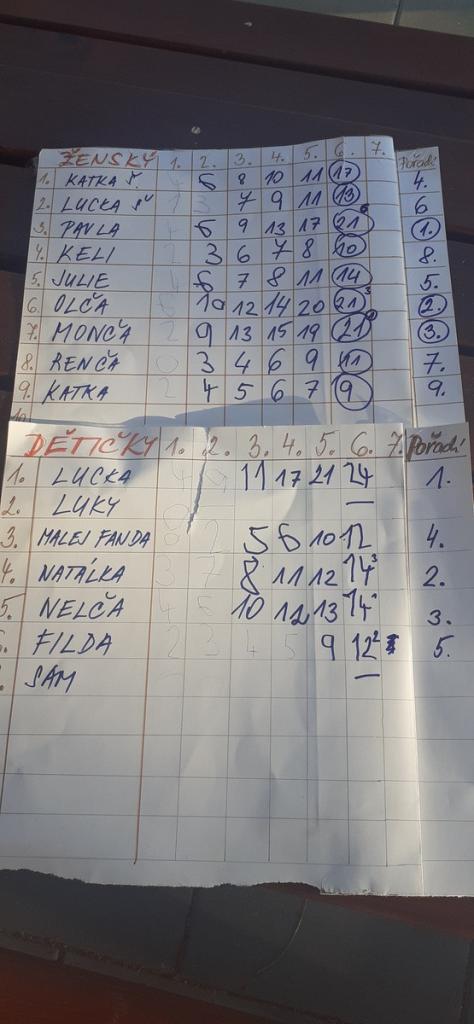 ŽENSKÝ 1. 2. 3. 4. 5. 6. 7. Pořadí
1. KATKA Š. 6 8 10 11 17 4.
2. LUCKA 1 3 7 9 11 13 6
3. PAVLA 4 6 9 13 17 21 1.
4. KELI 3 6 7 8 10 8.
5. JULIE 4 6 7 8 11 14 5.
6. OLČA 10 12 14 20 21³ 2.
7. MONČA 2 9 13 15 19 21 3.
8. RENČA 0 3 4 6 9 11 7.
9. KATKA 2 4 5 6 7 9 9.
10.
DĚTIČKY 1. 2. 3. 4. 5. 6. 7. Pořadí
1. LUCKA 4 9 11 17 21 24 1.
2. LUKY 0 —
3. MALEJ FANDA 0 2 5 6 10 12 4.
4. NATÁLKA 3 7 8 11 12 14³ 2.
5. NELČA 4 6 10 12 13 14 3.
FILDA 2 3 4 5 9 12² 5.
SAM —